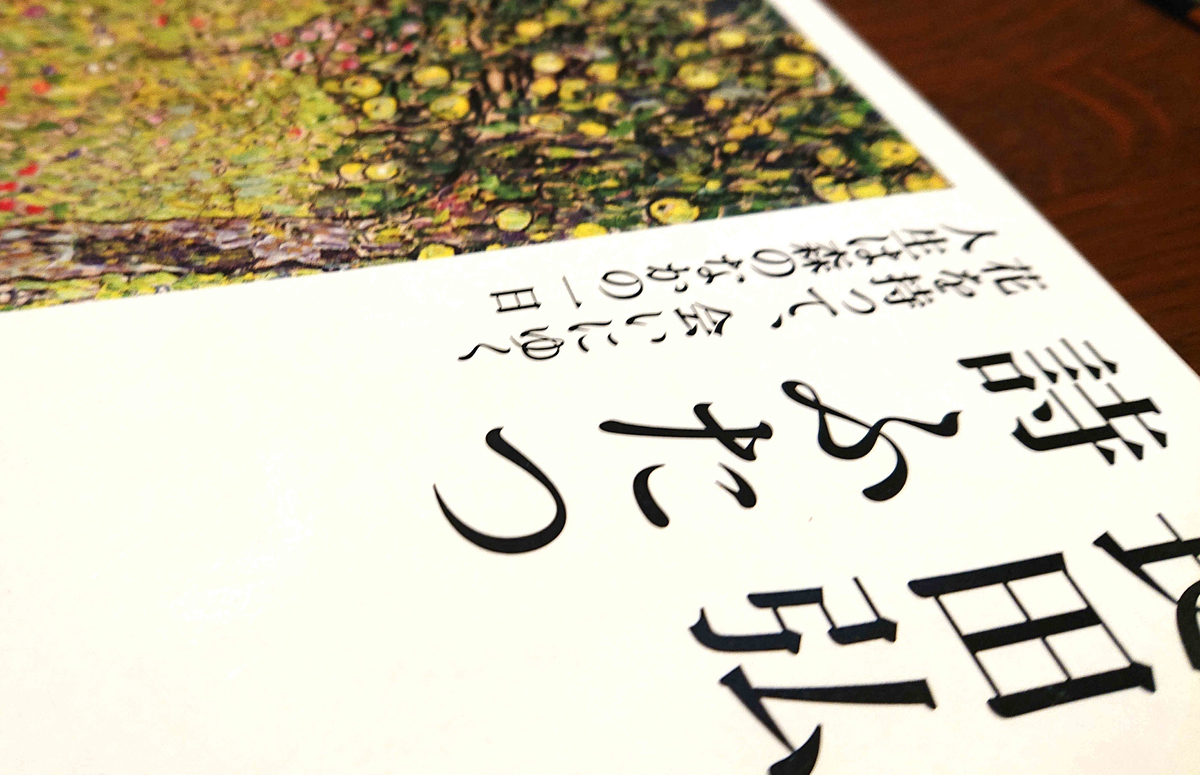 長田弘
詩ふたつ
花を持って、会いにゆく
人生は森のなかの一日